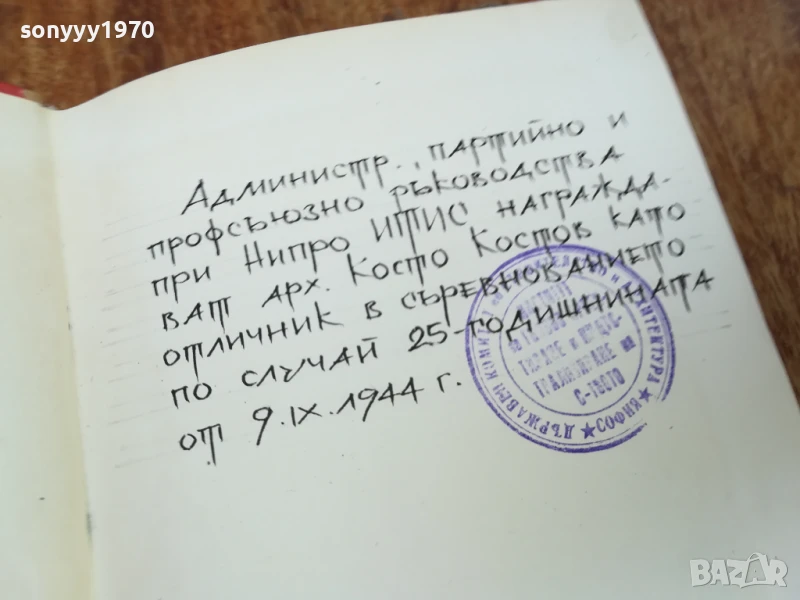 sonyyy1970
Администр., партийно и
профсъюзно ръководства
при Нипро ИТИС награжда-
ват арх. Косто Костов като
отличник в съревнованието
по случай 25-годишнината
от 9.IX.1944 г.
ДЪРЖАВЕН КОМИТЕТ И АРХИТЕКТУРА
★ СОФИЯ ★
ТИЗАЦИЯ И
С-ТВОТО
BAZAR